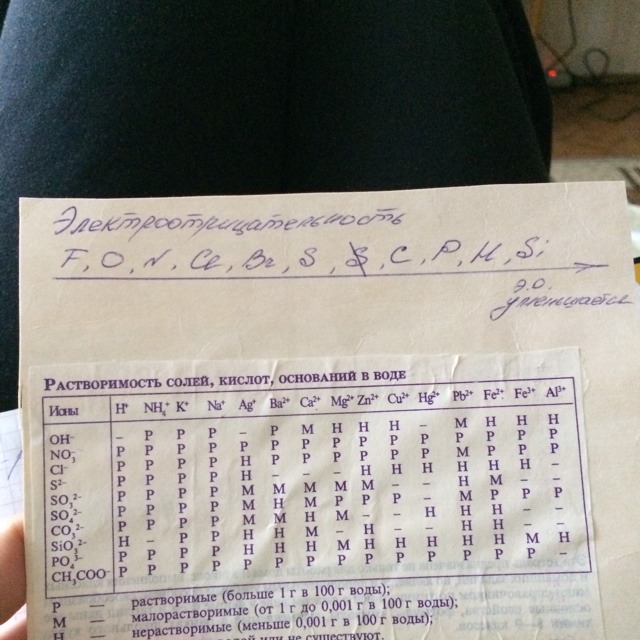 Электроотрицательность
F, O, N, Cl, Br, S, C, P, H, Si
э.о. уменьшается
РАСТВОРИМОСТЬ СОЛЕЙ, КИСЛОТ, ОСНОВАНИЙ В ВОДЕ
Ионы H⁺ NH₄⁺ K⁺ Na⁺ Ag⁺ Ba²⁺ Ca²⁺ Mg²⁺ Zn²⁺ Cu²⁺ Hg²⁺ Pb²⁺ Fe²⁺ Fe³⁺ Al³⁺
OH⁻ – Р Р Р – Р М Н Н Н – М Н Н Н
NO₃⁻ Р Р Р Р Р Р Р Р Р Р Р Р Р Р Р
Cl⁻ Р Р Р Р Н Р Р Р Р Р Р М Р Р Р
S²⁻ Р Р Р Р Н – – – Н Н Н Н Н – –
SO₃²⁻ Р Р Р Р М М М М М – – Н М – –
SO₄²⁻ Р Р Р Р М Н М Р Р Р – М Р Р Р
CO₃²⁻ Р Р Р Р
SiO₃²⁻ Н – Р Р
PO₄³⁻ Р Р Р Р Н Н Н М Н Н Н Н Н М Н
CH₃COO⁻ Р Р Р Р Р Р Р Р Р Р Р Р Р Р –
Р — растворимые (больше 1 г в 100 г воды);
М — малорастворимые (от 1 г до 0,001 г в 100 г воды);
Н — нерастворимые (меньше 0,001 г в 100 г воды);
или не существуют.